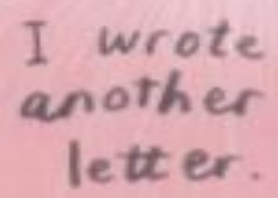 I wrote
another
letter.